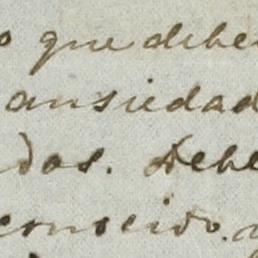 o que debe
ansiedad
dos. Debe
conocido.